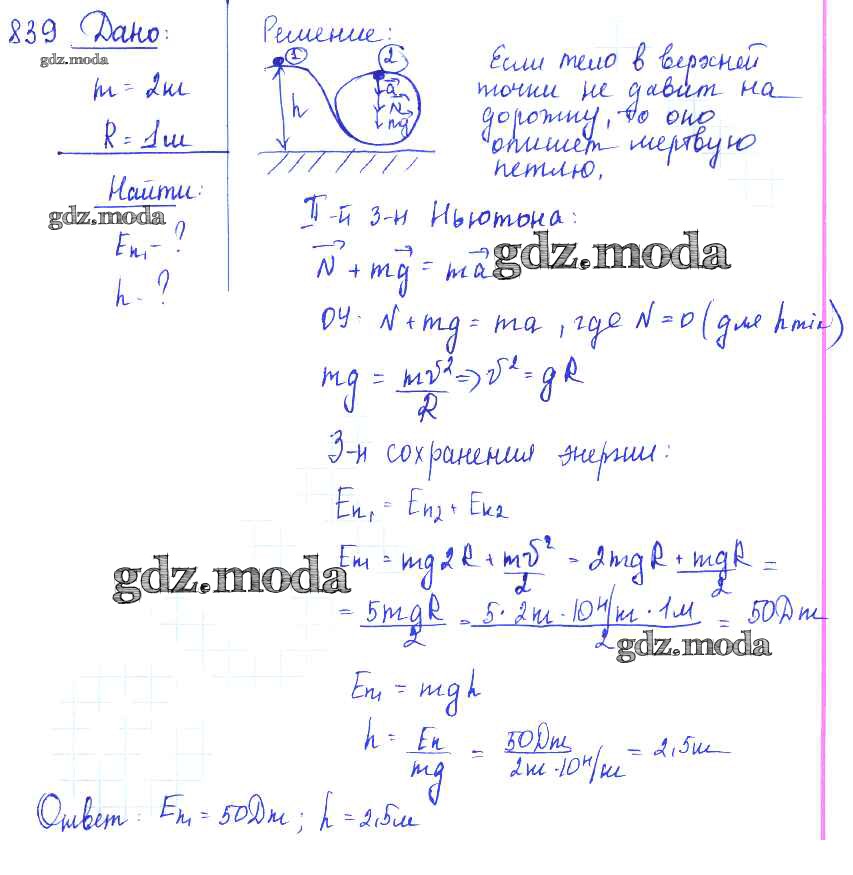 839 Дано:
gdz.moda
m = 2кг
R = 1м
Найти:
gdz.moda
Eп₁ - ?
h - ?
Решение:
1
2
h
a
N
mg
Если тело в верхней
точки не давит на
дорожку, то оно
опишет мертвую
петлю.
II-й З-н Ньютона:
N + mg = ma
gdz.moda
ОУ: N + mg = ma, где N = 0 (для h min)
mg = mv²/R => v² = gR
З-н сохранения энергии:
Eп₁ = Eп₂ + Eк₂
Eп₁ = mg2R + mv²/2 = 2mgR + mgR/2 =
gdz.moda
= 5mgR/2 = 5·2кг·10Н/кг·1м/2 = 50Дж
gdz.moda
Eп₁ = mgh
h = Eп/mg = 50Дж/2кг·10Н/кг = 2,5м
Ответ: Eп₁ = 50Дж; h = 2,5м